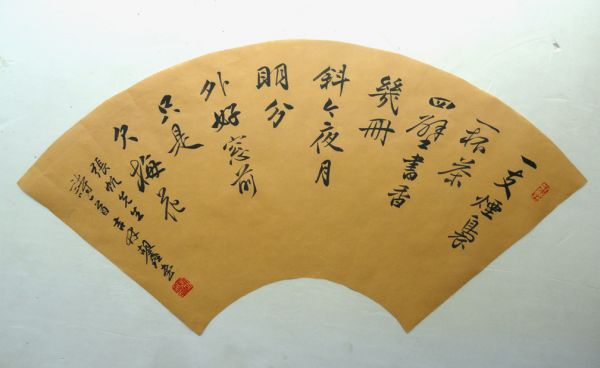 一支煙裊
一杯茶
四壁書香
幾冊
斜今夜月
明分
外好窓前
只是
欠梅花
張帆先生
詩一首